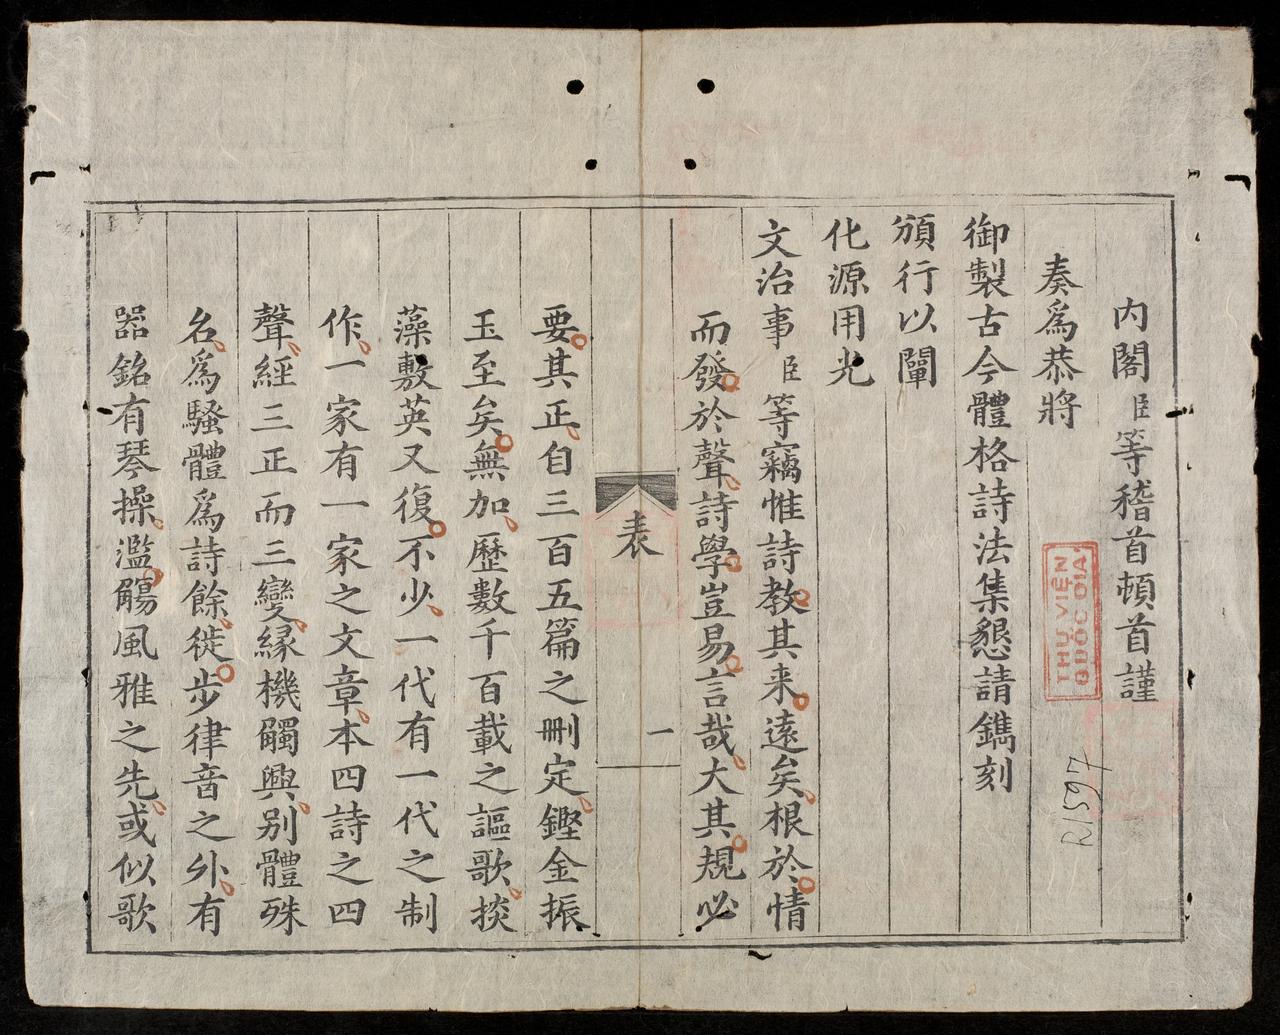 内閣臣等稽首頓首謹
奏爲恭將
御製古今體格詩法集懇請鐫刻
頒行以闡
化源用光
文治事臣等竊惟詩教其来遠矣根於情
而發於聲詩學豈易言哉大其規必
表
一
要其正自三百五篇之刪定鏗金振
玉至矣無加歷數千百載之謳歌掞
藻敷英又復不少一代有一代之制
作一家有一家之文章本四詩之四
聲經三正而三變緣機觸興别體殊
名爲騷體爲詩餘徙步律音之外有
器銘有琴操濫觴風雅之先或似歌
THƯ VIỆN
QUỐC GIA
R1597